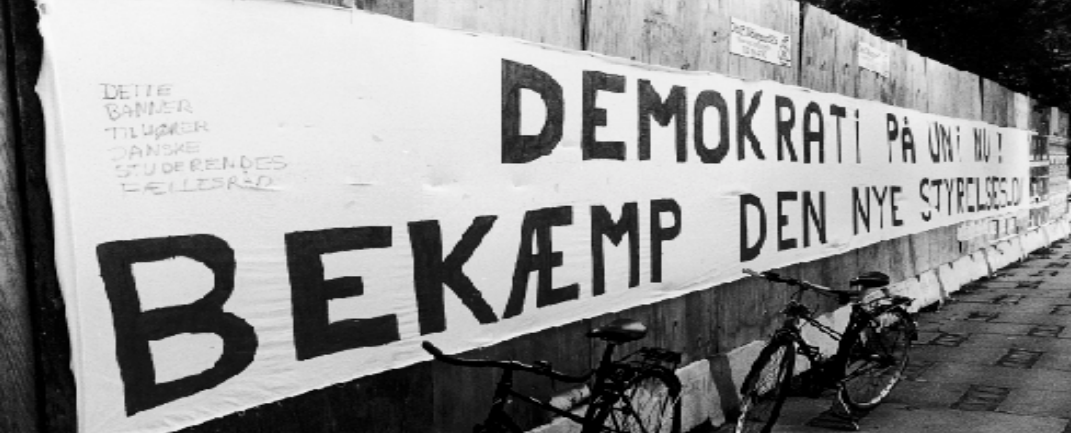 DETTE
BANNER
TILHØRER
DANSKE
STUDERENDES
FÆLLESRÅD
DEMOKRATi PÅ UNi NU!
BEKÆMP DEN NYE STYRELSESLOV